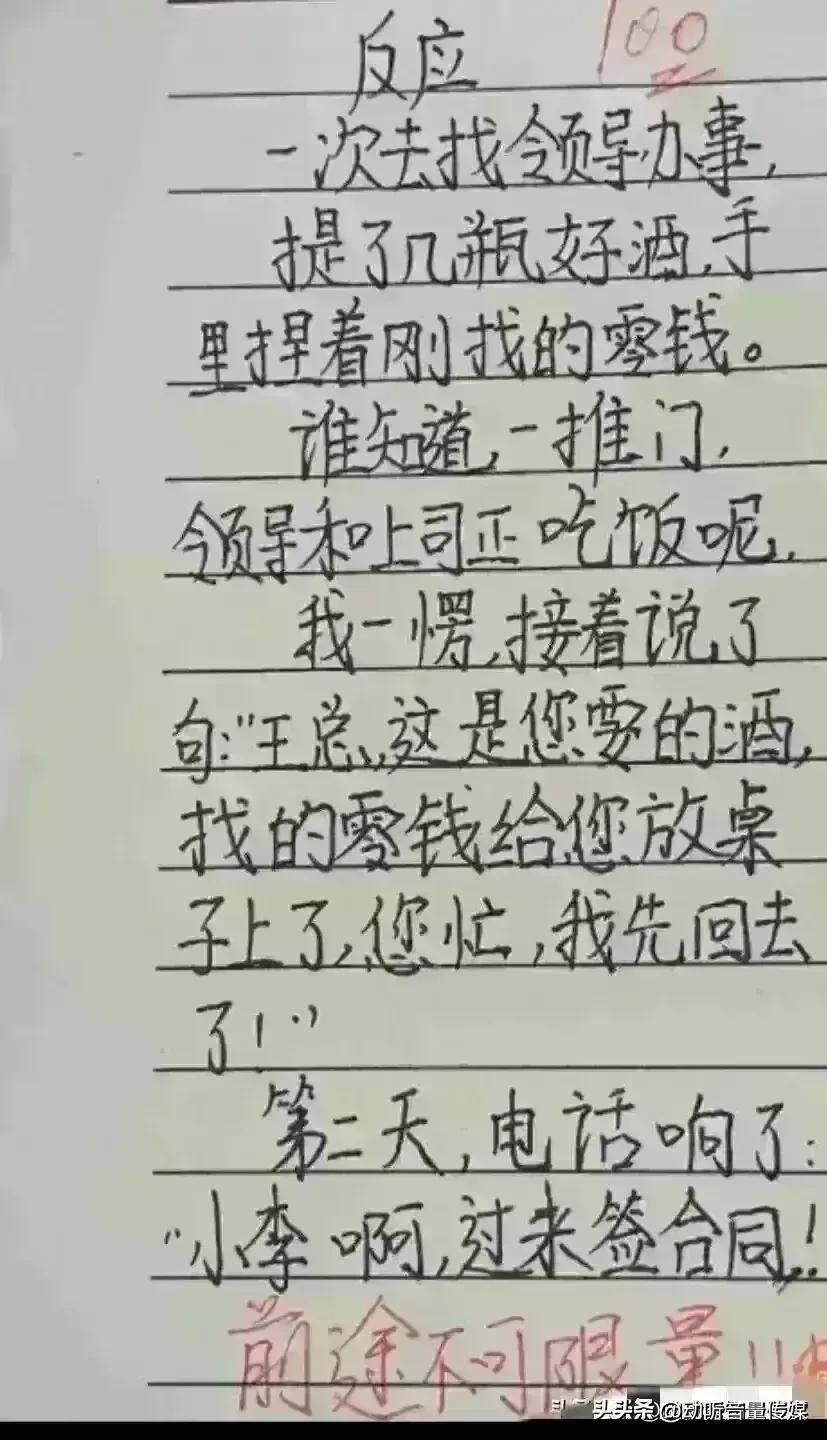 100
反应
一次去找领导办事,
提了几瓶好酒,手
里捏着刚找的零钱。
谁知道,一推门,
领导和上司正吃饭呢,
我一愣,接着说了
句:"王总,这是您要的酒,
找的零钱给您放桌
子上了,您忙,我先回去
了!"
第二天,电话响了:
"小李啊,过来签合同,!
前途不可限量!!
头条 @动听音量传媒